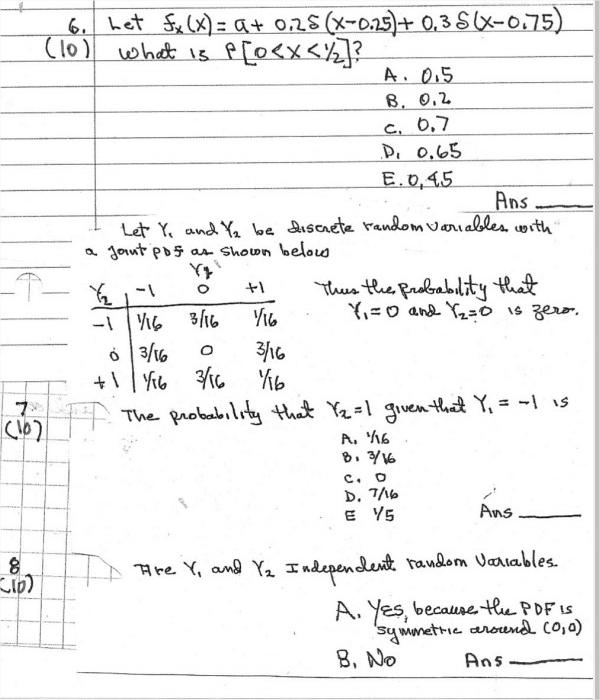 6. Let fx(x) = a + 0.2δ(x-0.25) + 0.3δ(x-0.75)
(10) What is P[0<X<1/2]?
A. 0.5
B. 0.2
C. 0.7
D. 0.65
E. 0.45
Ans
Let Y₁ and Y₂ be discrete random variables with
a joint pdf as shown below
Y₁
Y₂ -1 0 +1
-1 1/16 3/16 1/16
0 3/16 0 3/16
+1 1/16 3/16 1/16
Thus the probability that
Y₁=0 and Y₂=0 is zero.
7
(10)
The probability that Y₂=1 given that Y₁ = -1 is
A. 1/16
B. 3/16
C. 0
D. 7/16
E 1/5
Ans
8
(10)
Are Y₁ and Y₂ Independent random Variables.
A. Yes, because the PDF is
symmetric around (0,0)
B. No
Ans